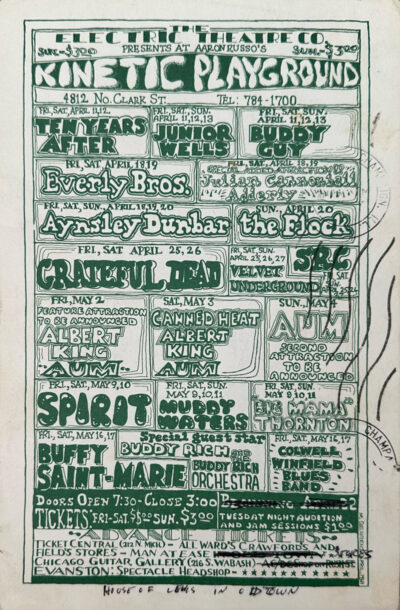 THE
ELECTRIC THEATRE CO.
SUN.-$3.00 PRESENTS AT AARON RUSSO'S SUN.-$3.00
KINETIC PLAYGROUND
4812 NO. CLARK ST. TEL: 784-1700
FRI, SAT, APRIL 11, 12,
TEN YEARS
AFTER
FRI, SAT, SUN.
APRIL 11, 12, 13
JUNIOR
WELLS
FRI, SAT, SUN.
APRIL 11, 12, 13
BUDDY
GUY
FRI, SAT, APRIL 18, 19
EVERLY BROS.
FRI, SAT. APRIL 18, 19
SPECIAL ADDED ATTRACTION
JULIAN CANNONBALL
ADDERLY
FRI, SAT, SUN, APRIL 18, 19, 20
AYNSLEY DUNBAR
SUN. APRIL 20
THE FLOCK
FRI, SAT APRIL 25, 26
GRATEFUL DEAD
FRI, SAT, SUN.
APRIL 25, 26, 27
VELVET
UNDERGROUND
SRC
FRI, MAY 2
FEATURE ATTRACTION
TO BE ANNOUNCED
ALBERT
KING
"AUM"
SAT, MAY 3
CANNED HEAT
ALBERT
KING
"AUM"
SUN., MAY 4
AUM
SECOND
ATTRACTION
TO BE
ANNOUNCED
FRI., SAT, MAY 9, 10
SPIRIT
FRI, SAT, SUN.
MAY 9, 10, 11
MUDDY
WATERS
FRI, SAT, SUN
MAY 9, 10, 11
"BIG MAMA"
THORNTON
FRI, SAT, MAY 16, 17
BUFFY
SAINT-MARIE
Special guest star
BUDDY RICH AND
BUDDY RICH
ORCHESTRA
FRI, SAT, MAY 16, 17
COLWELL
WINFIELD
BLUES
BAND
DOORS OPEN 7:30 - CLOSE 3:00
TICKETS FRI-SAT. $5.00 SUN. $3.00
TUESDAY NIGHT AUDITION
AND JAM SESSIONS $1.00
ADVANCE TICKETS
TICKET CENTRAL (212 N. MICH) - ALL WARD'S, CRAWFORD'S AND
FIELD'S STORES - MAN AT EASE
CHICAGO GUITAR GALLERY (216 S. WABASH)
EVANSTON: SPECTACLE HEADSHOP
HOUSE OF LEWIS IN OLDTOWN
CHAMPA